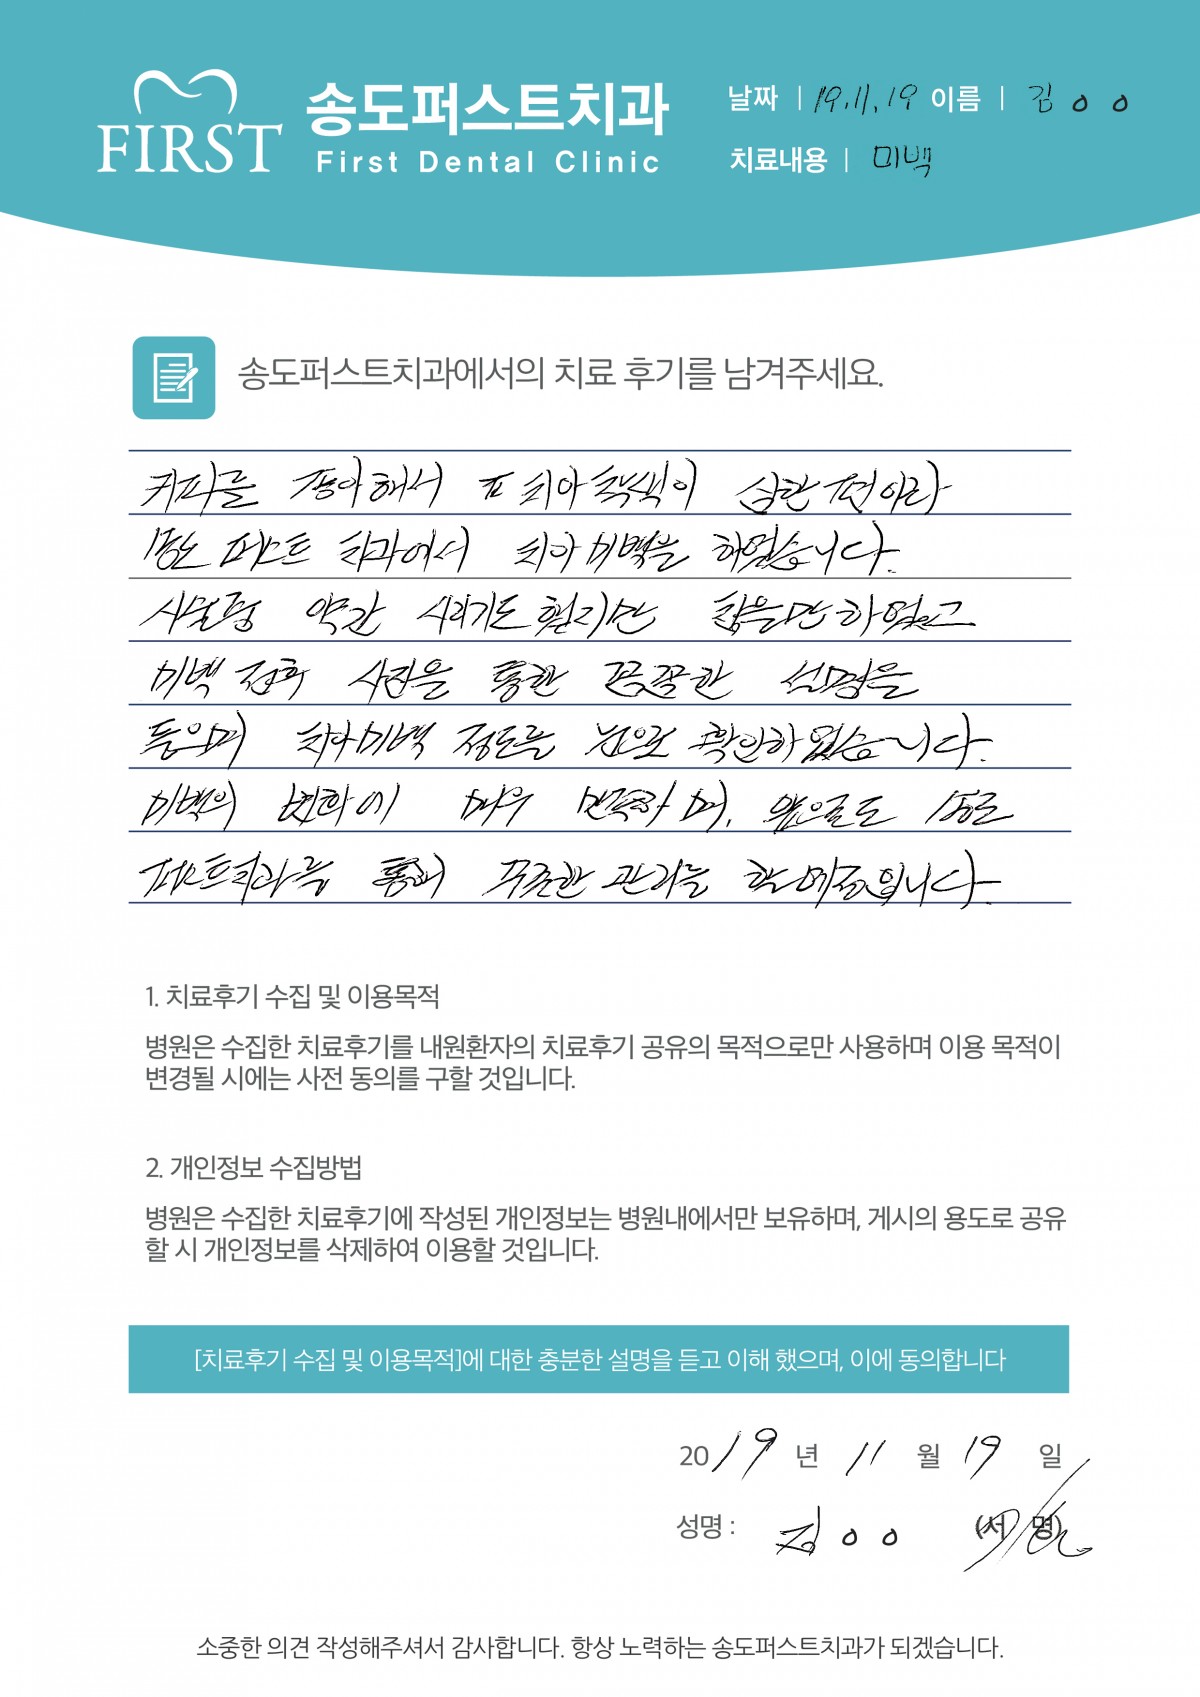 FIRST
송도퍼스트치과
First Dental Clinic
날짜 | 19.11.19 이름 | 김 o o
치료내용 | 미백
송도퍼스트치과에서의 치료 후기를 남겨주세요.
커피를 좋아해서 치아착색이 심한 편이라
송도 퍼스트 치과에서 치아 미백을 하였습니다.
시술중 약간 시리기도 했지만 참을만 하였고
미백 전후 사진을 통한 꼼꼼한 설명을
들으며 치아미백 정도를 눈으로 확인하였습니다.
미백의 변화에 매우 만족하며, 앞으로도 송도
퍼스트치과를 통해 꾸준한 관리를 할 예정입니다.
1. 치료후기 수집 및 이용목적
병원은 수집한 치료후기를 내원환자의 치료후기 공유의 목적으로만 사용하며 이용 목적이
변경될 시에는 사전 동의를 구할 것입니다.
2. 개인정보 수집방법
병원은 수집한 치료후기에 작성된 개인정보는 병원내에서만 보유하며, 게시의 용도로 공유
할 시 개인정보를 삭제하여 이용할 것입니다.
[치료후기 수집 및 이용목적]에 대한 충분한 설명을 듣고 이해 했으며, 이에 동의합니다
2019 년 11 월 19 일
성명 : 김 o o (서 명)
소중한 의견 작성해주셔서 감사합니다. 항상 노력하는 송도퍼스트치과가 되겠습니다.